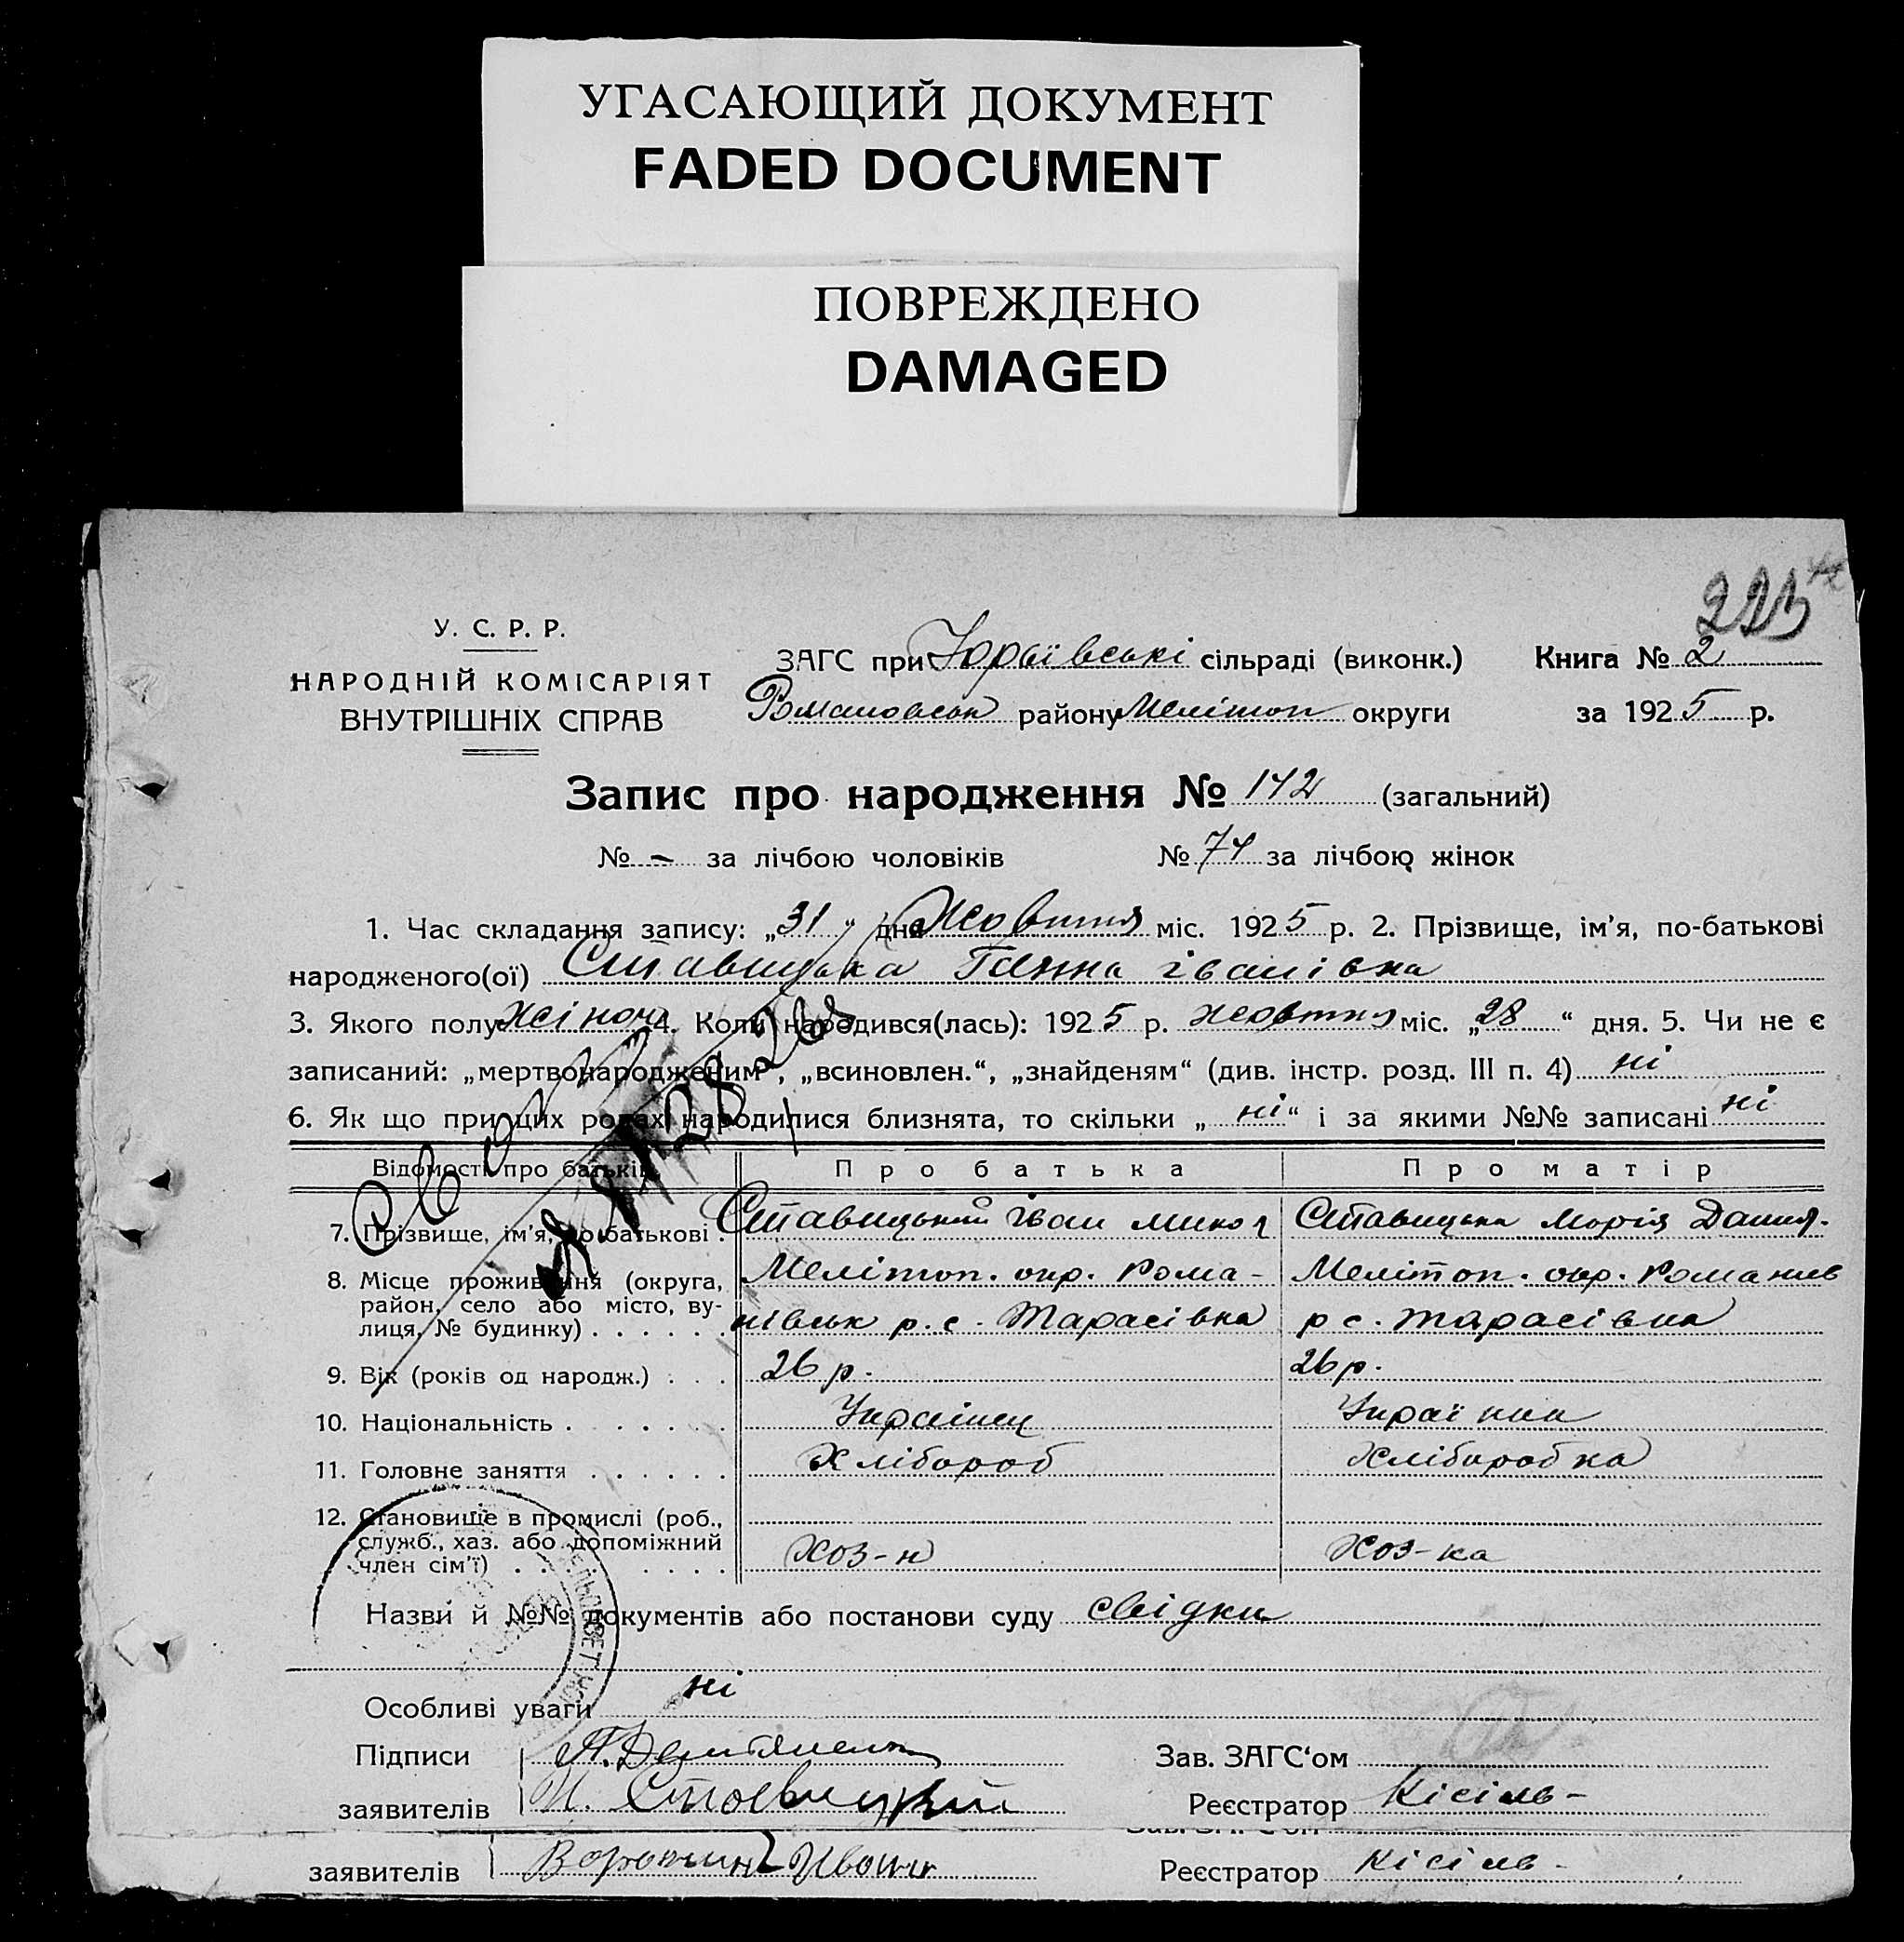 УГАСАЮЩИЙ ДОКУМЕНТ
FADED DOCUMENT
ПОВРЕЖДЕНО
DAMAGED
223
У. С. Р. Р.
НАРОДНІЙ КОМІСАРІЯТ
ВНУТРІШНІХ СПРАВ
ЗАГС при Юрьївські сільраді (виконк.) Книга № 2
району Мелітоп округи за 1925 р.
Запис про народження № 142 (загальний)
№ - за лічбою чоловіків № 74 за лічбою жінок
1. Час складання запису: „31“ дня Жовтня міс. 1925 р. 2. Прізвище, ім'я, по-батькові
народженого(ої) Ставицька Ганна Іванівна
3. Якого полу жіноч 4. Коли народився(лась): 1925 р. жовтня міс. „28“ дня. 5. Чи не є
записаний: „мертвонародженим“, „всиновлен.“, „знайденям“ (див. інстр. розд. III п. 4) ні
6. Як що при цих родах народилися близнята, то скільки „ні“ і за якими №№ записані ні
Відомості про батьків Про батька Про матір
7. Прізвище, ім'я, по-батькові . Ставицький Іван Микол Ставицька Марія Данил.
8. Місце проживання (округа, Мелітоп. окр. Рома- Меліт оп. окр. Романив
район, село або місто, ву-
лиця, № будинку) . . . . . . нівськ р. с. Тарасівка р с. Тарасівка
9. Вік (років од народж.) . . . 26 р. 26 р.
10. Національність . . . . . . Українец Українка
11. Головне заняття . . . . . . Хлібороб Хліборобка
12. Становище в промислі (роб.,
служб., хаз. або допоміжний
член сім'ї) . . . . . . . . Хоз-н Хоз-ка
Назви й №№ документів або постанови суду свідки
Особливі уваги ні
Підписи Зав. ЗАГС'ом
заявителів И. Ставицкий Реєстратор Кісіль-
заявителів Иван Реєстратор Кісіль-